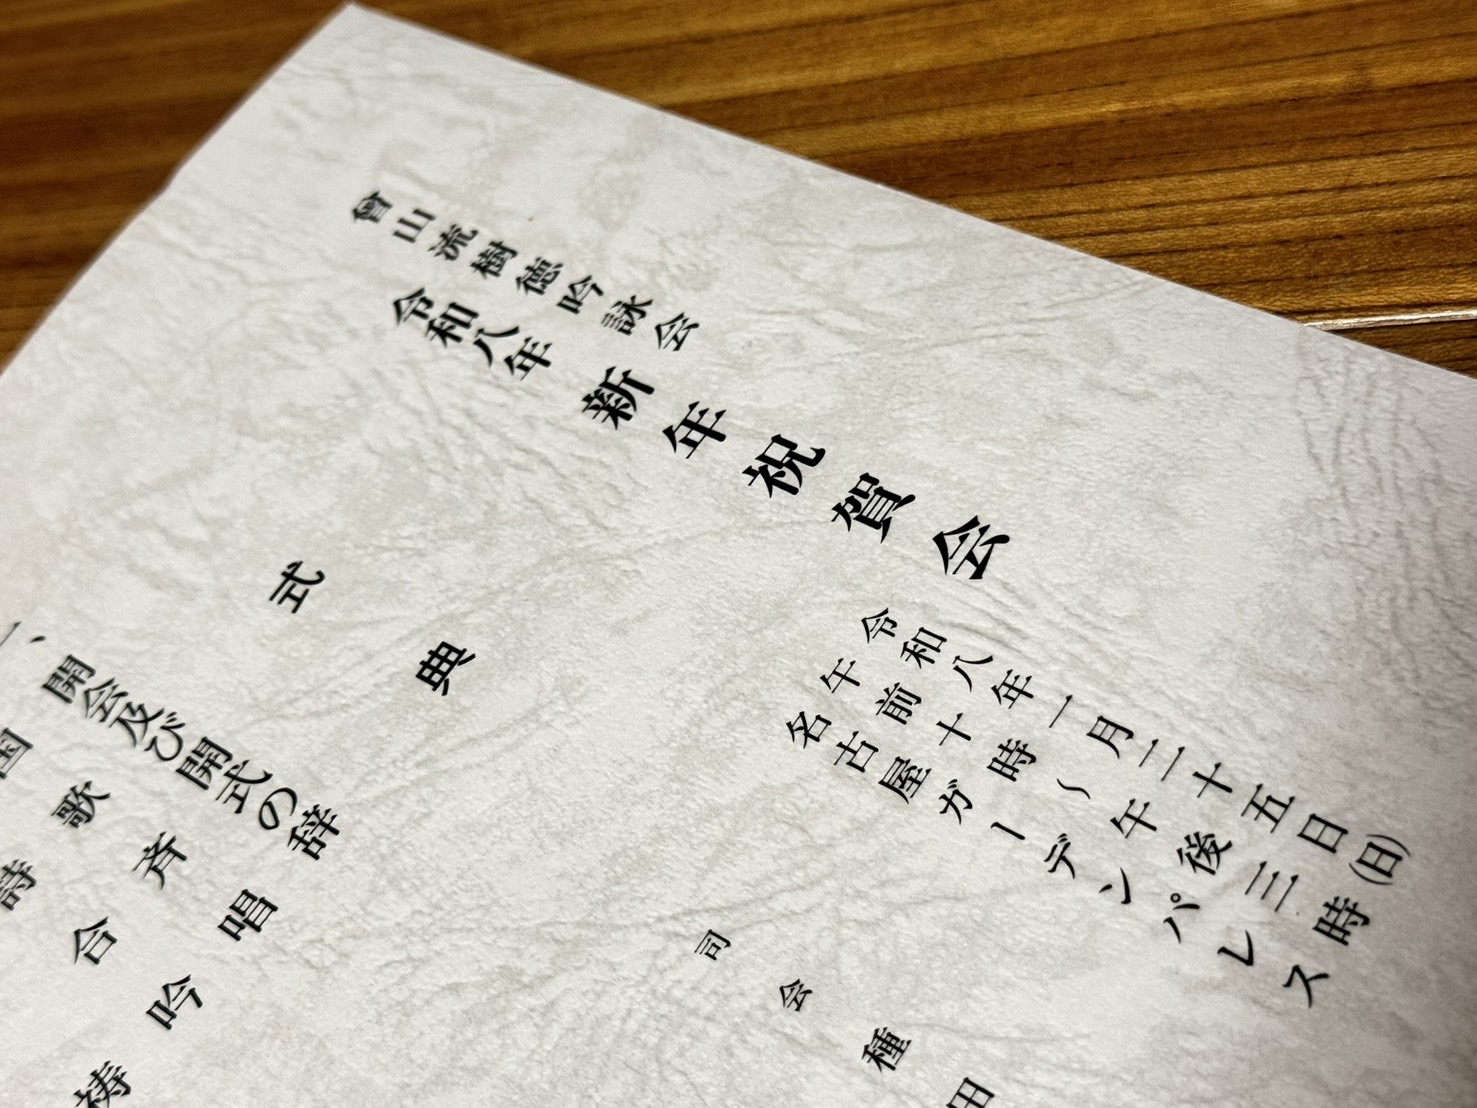 會山流樹徳吟詠会
令和八年 新年祝賀会
令和八年一月二十五日(日)
午前十時～午後三時
名古屋ガーデンパレス
司会 種田
式典
一、開会及び開式の辞
国歌斉唱
詩合吟
祷